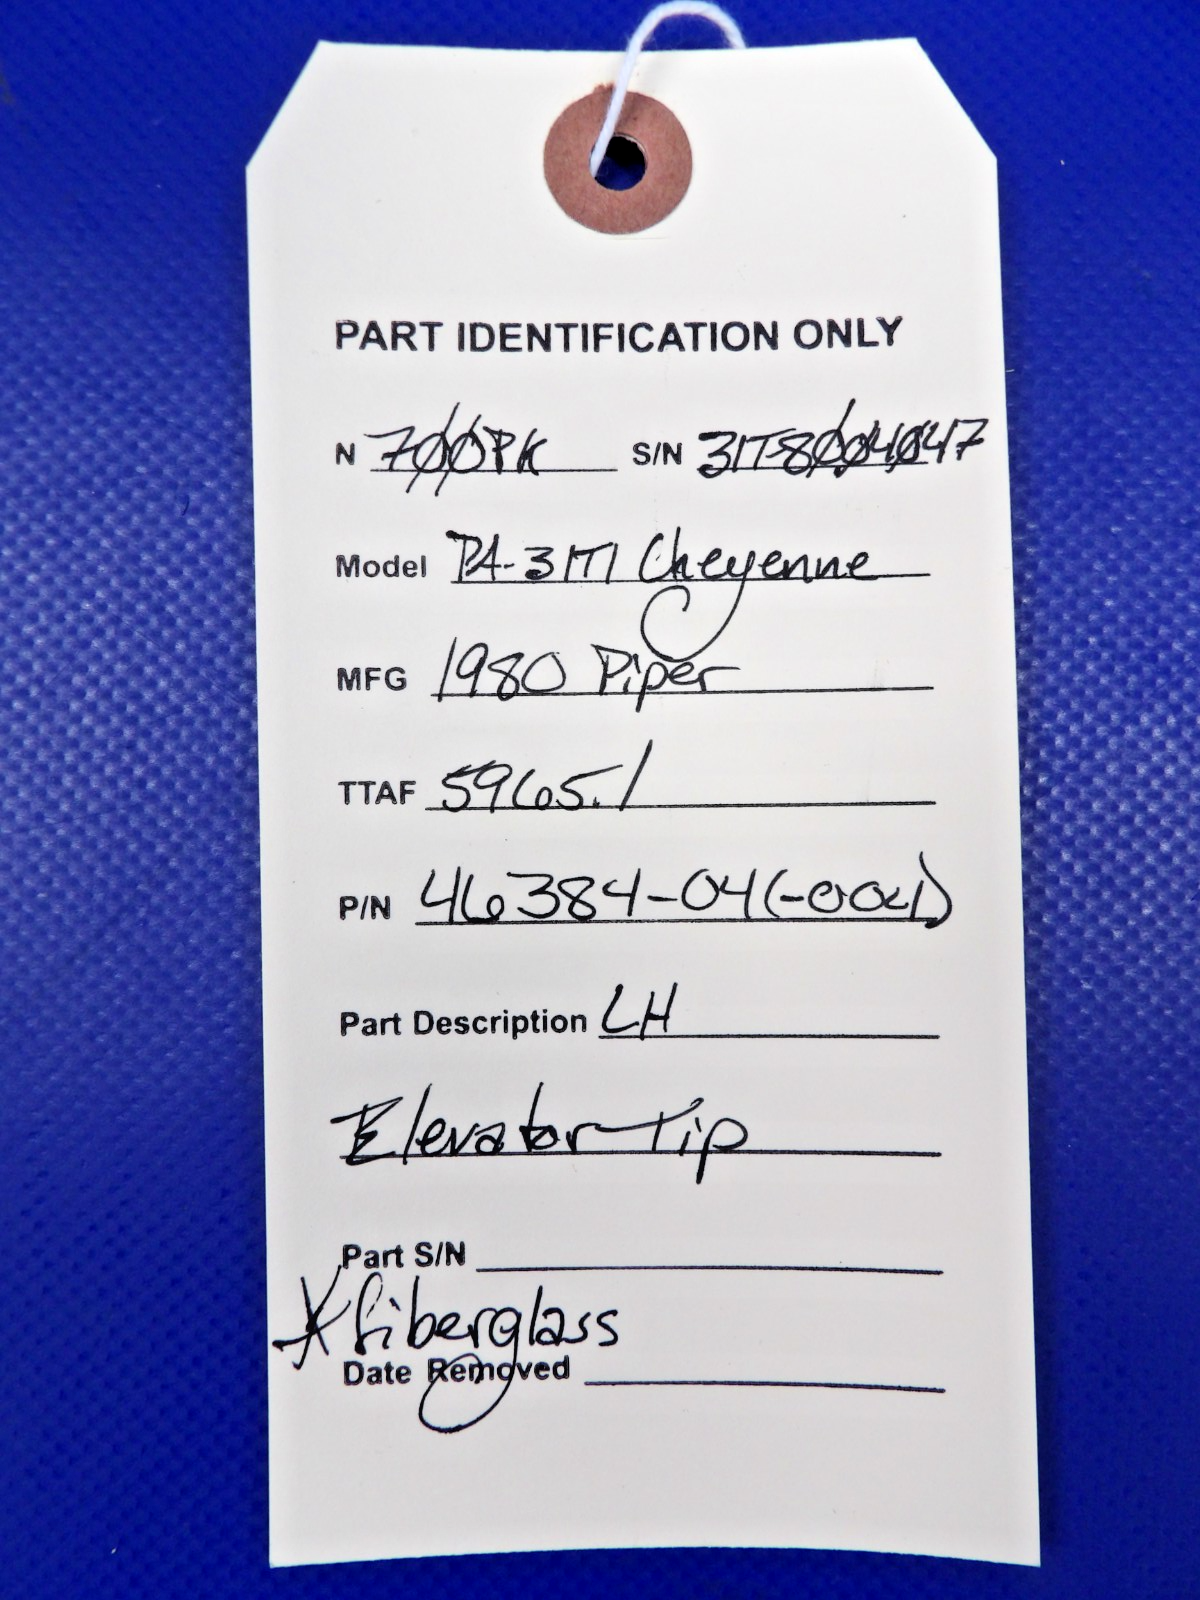 PART IDENTIFICATION ONLY
N 700PK S/N 31T-8004047
Model PA-31T1 Cheyenne
MFG 1980 Piper
TTAF 5965.1
P/N 46384-04(-004)
Part Description LH
Elevator Tip
Part S/N
*fiberglass
Date Removed